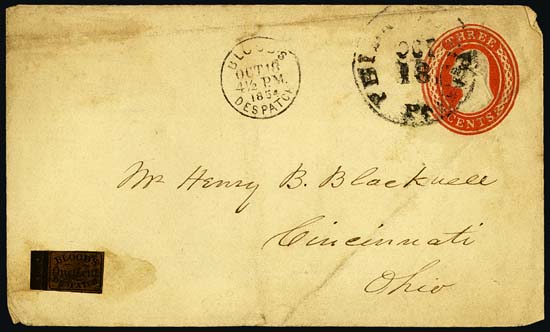 BLOOD'S
OCT 18
4½ P.M.
1854
DESPATCH
OCT
18
THREE
CENTS
Mr Henry B. Blackwell
Cincinnati
Ohio
BLOOD'S
One Cent
DESPATCH